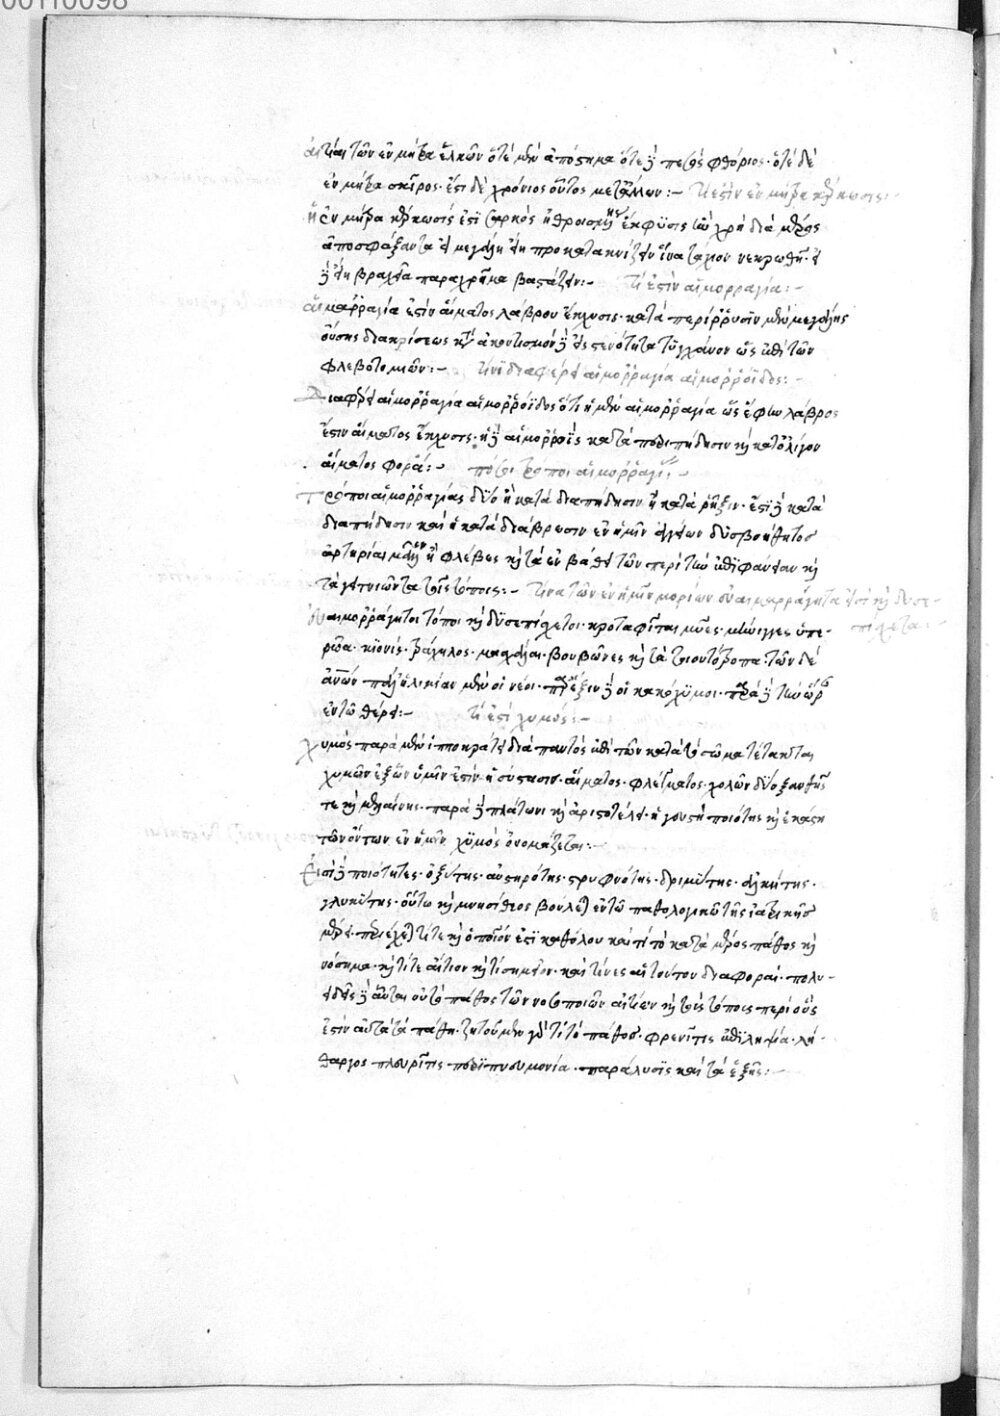 00110098
αἰτίαι τῶν ἐν μήτρα ἑλκῶν ὁτὲ μὲν ἀπόστημα ὁτὲ δὲ πεσσὸς φθόριος· ὁτὲ δὲ
ἐν μήτρα σκίρος· ἔστι δὲ χρόνιος οὗτος :- Τί ἐστιν ἐν μήτρα κέρκωσις :-
ἡ ἐν μήτρα κέρκωσίς ἐστι σαρκὸς ἔκφυσις ἣν χρὴ διὰ
ἀποσφίξαντα εἰ μεγάλη εἴη προκατακνίζειν ἵνα τάχιον νεκρωθῆ· εἰ
δὲ εἴη βραχεῖα παραχρῆμα βαστάζειν :- τί ἐστιν αἱμορραγία :-
αἱμορραγία ἐστὶν αἵματος λάβρου ἔκχυσις· κατὰ περίρρυσιν μὲν μεγάλης
οὔσης διακρίσεως κατὰ ἀκοντισμὸν δὲ στενότητα τυγχάνον ὡς ἐπὶ τῶν
φλεβοτομιῶν :- τίνι διαφέρει αἱμορραγία αἱμορροΐδος :-
Διαφέρει αἱμορραγία αἱμορροΐδος ὅτι ἡ μὲν αἱμορραγία ὡς ἔφην λάβρος
ἐστιν αἵματος ἔκχυσις· ἡ δὲ αἱμορροῒς κατὰ καὶ κατ' ὀλίγον
αἵματος φορά :- πόσοι τρόποι αἱμορραγίας :-
Τρόποι αἱμορραγίας δύο ἢ κατὰ διαπήδησιν ἢ κατὰ ῥῆξιν· ἔστι δὲ κατὰ
διαπήδησιν καὶ ἡ κατὰ διάβρωσιν ἐν ἡμῖν δυσβοήθητος
ἀρτηρίαι ἢ φλέβες καὶ τὰ ἐν βάθει τῶν περὶ τὴν ἐπιφάνειαν καὶ
τὰ γειτνιῶντα τοῖς τόποις :- τίνα τῶν ἐν ἡμῖν μορίων εὐαιμορράγητα ἐστὶ καὶ δυσε-
πίσχετα :-
εὐαιμορράγητοι τόποι καὶ δυσεπίσχετοι· κροταφῖται μύες· μήνιγγες ὑπε-
ρῶα· κιονίς· τράχηλος· μασχάλαι· βουβῶνες καὶ τὰ τοιουτότροπα· τῶν δὲ
ἀνων παρ' ἡλικίαν μὲν οἱ νέοι· παρ' ἕξιν δὲ οἱ κακόχυμοι· παρὰ δὲ τὴν ὥραν
ἐν τῶ θέρει :- τί ἐστὶ χυμός :-
χυμὸς παρὰ μὲν ἱπποκράτει διὰ παντὸς ἐπὶ τῶν κατὰ τὸ σῶμα τέτακται
χυμῶν ἐξ ὧν ἡμῖν ἐστὶν ἡ σύστασις· αἵματος· φλέγματος· χολῶν δύο ξανθῆς
τε καὶ μελαίνης· παρὰ δὲ πλάτωνι καὶ ἀριστοτέλει· ἡ γευστὴ ποιότης καὶ ἑκάστη
τῶν ὄντων ἐν ἡμῖν χυμὸς ὀνομάζεται :-
Εἰσὶ δὲ ποιότητες· ὀξύτης· αὐστηρότης· στρυφνότης· δριμύτης· ἁλυκότης·
γλυκύτης· οὕτω καὶ μνησίθεος βούλεται ἐν τῶ παθολογικῶ τῆς ἰατρικῆς
μέρει· περιέχεται τί τε καὶ ὁποῖόν ἐστι καθόλου καὶ τί τὸ κατὰ μέρος πάθος καὶ
νόσημα· καὶ τί τε αἴτιον καὶ τί σημεῖον· καὶ τίνες αἱ τούτου διαφοραί· πολυ-
ειδεῖς δὲ αὗται οὐ τὸ πάθος τῶν νοσοποιῶν αἰτίων καὶ τοῖς τόποις περὶ οὓς
ἐστὶν αὐτὰ τὰ πάθη· ζητοῦμεν γὰρ τί τὸ πάθος· φρενῖτις ἐπιληψία· λή-
θαργος πλευρῖτις περιπνευμονία· παράλυσις καὶ τὰ ἑξῆς :-